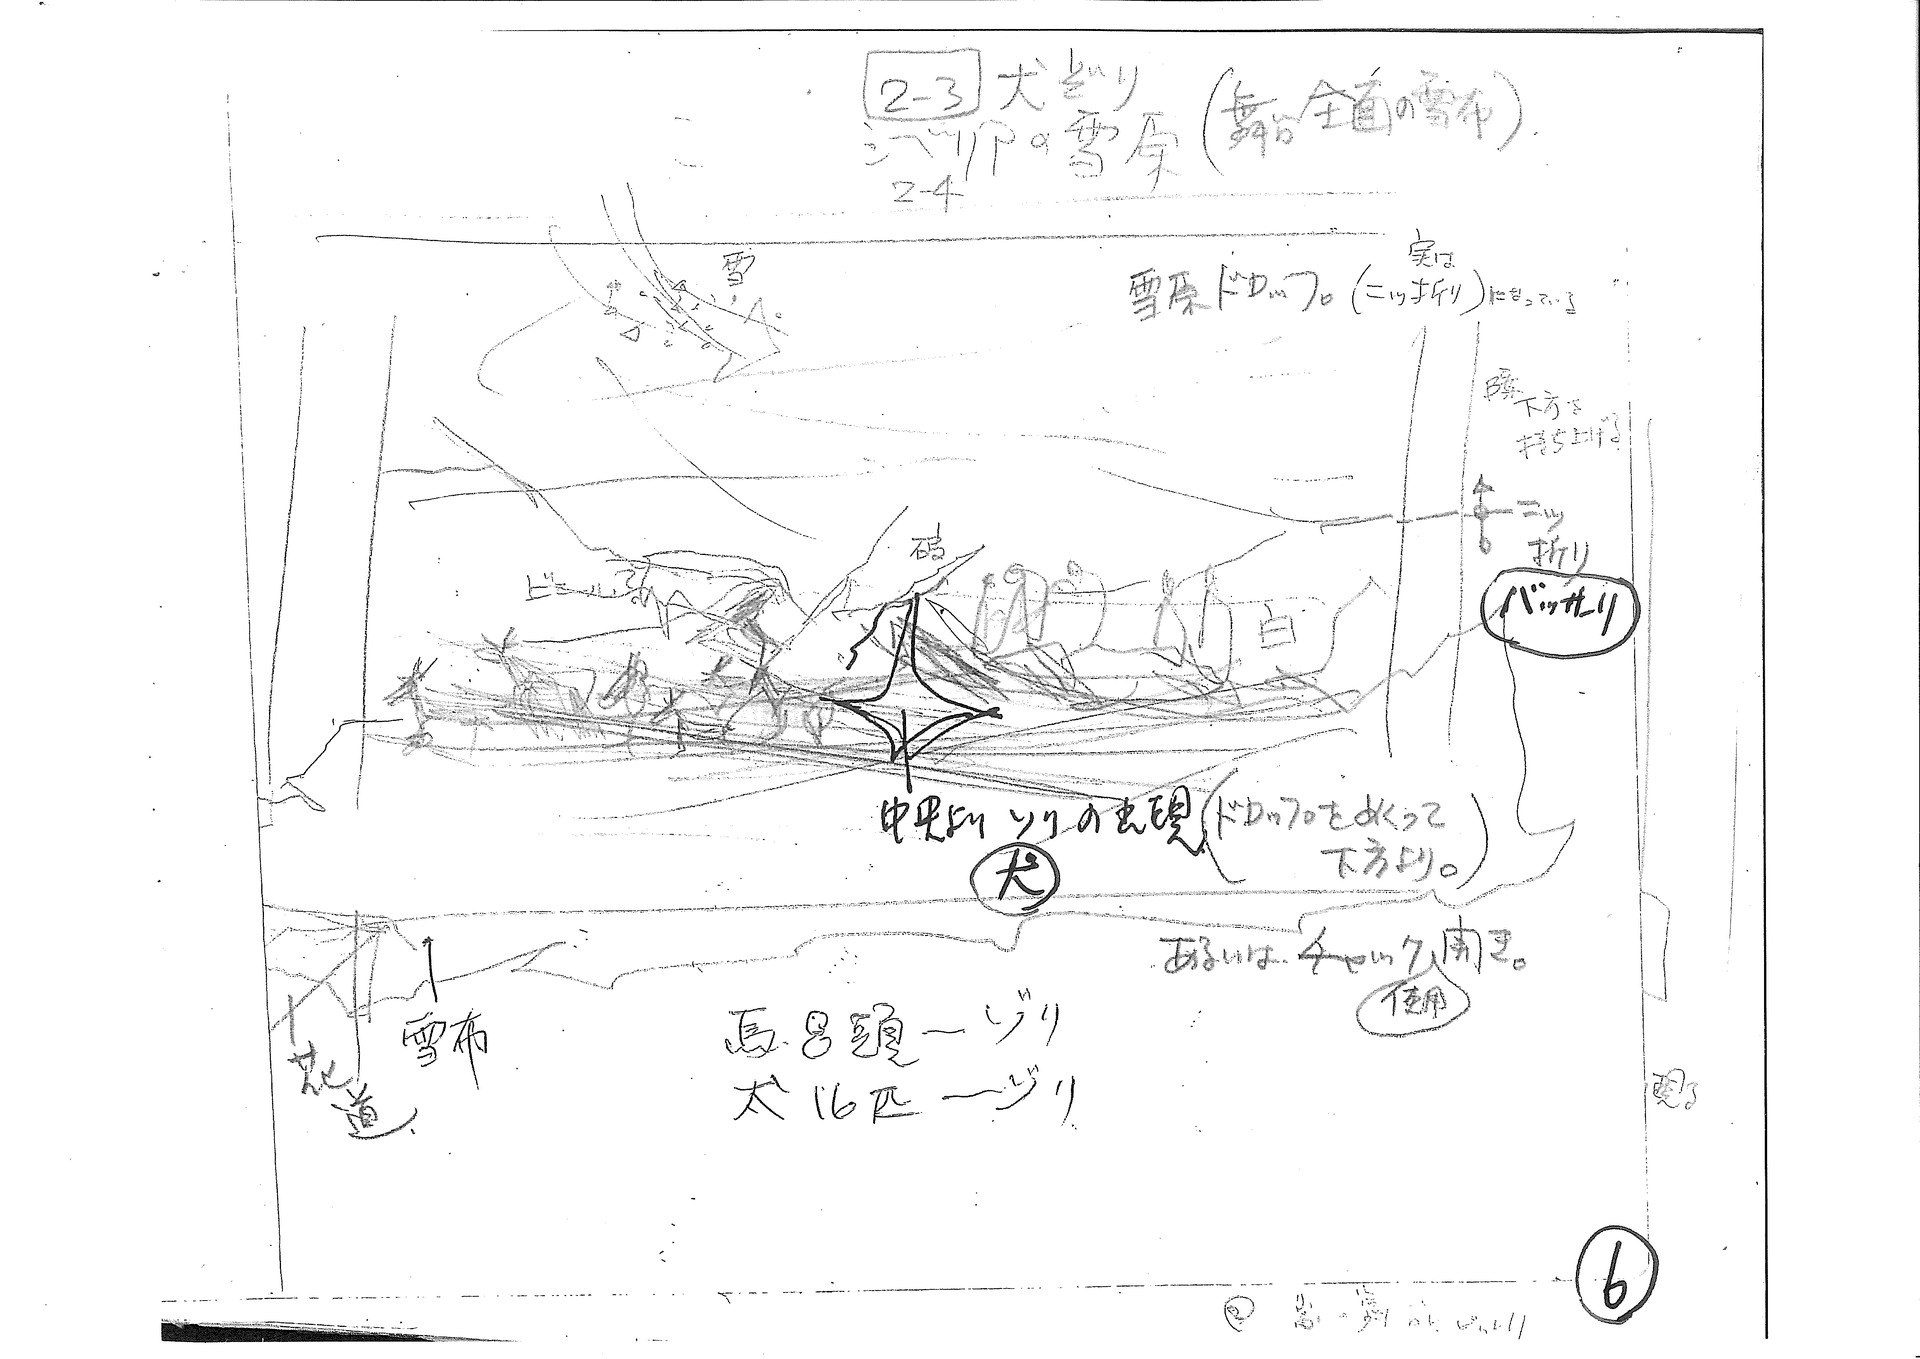 2-3 犬ぞり
シベリアの雪原(舞台全面の雪布)
2-4
雪
実は
雪原ドロップ。(二ッ折り)になっている
下方を
持ち上げる
二ッ
折り
バッサリ
破
白
中央より ソリの出現(ドロップをめくって
下方より。)
犬
あるいは チャック開き。
使用
雪布
花道
馬8頭―ゾリ
犬16匹―ゾリ
現る
6